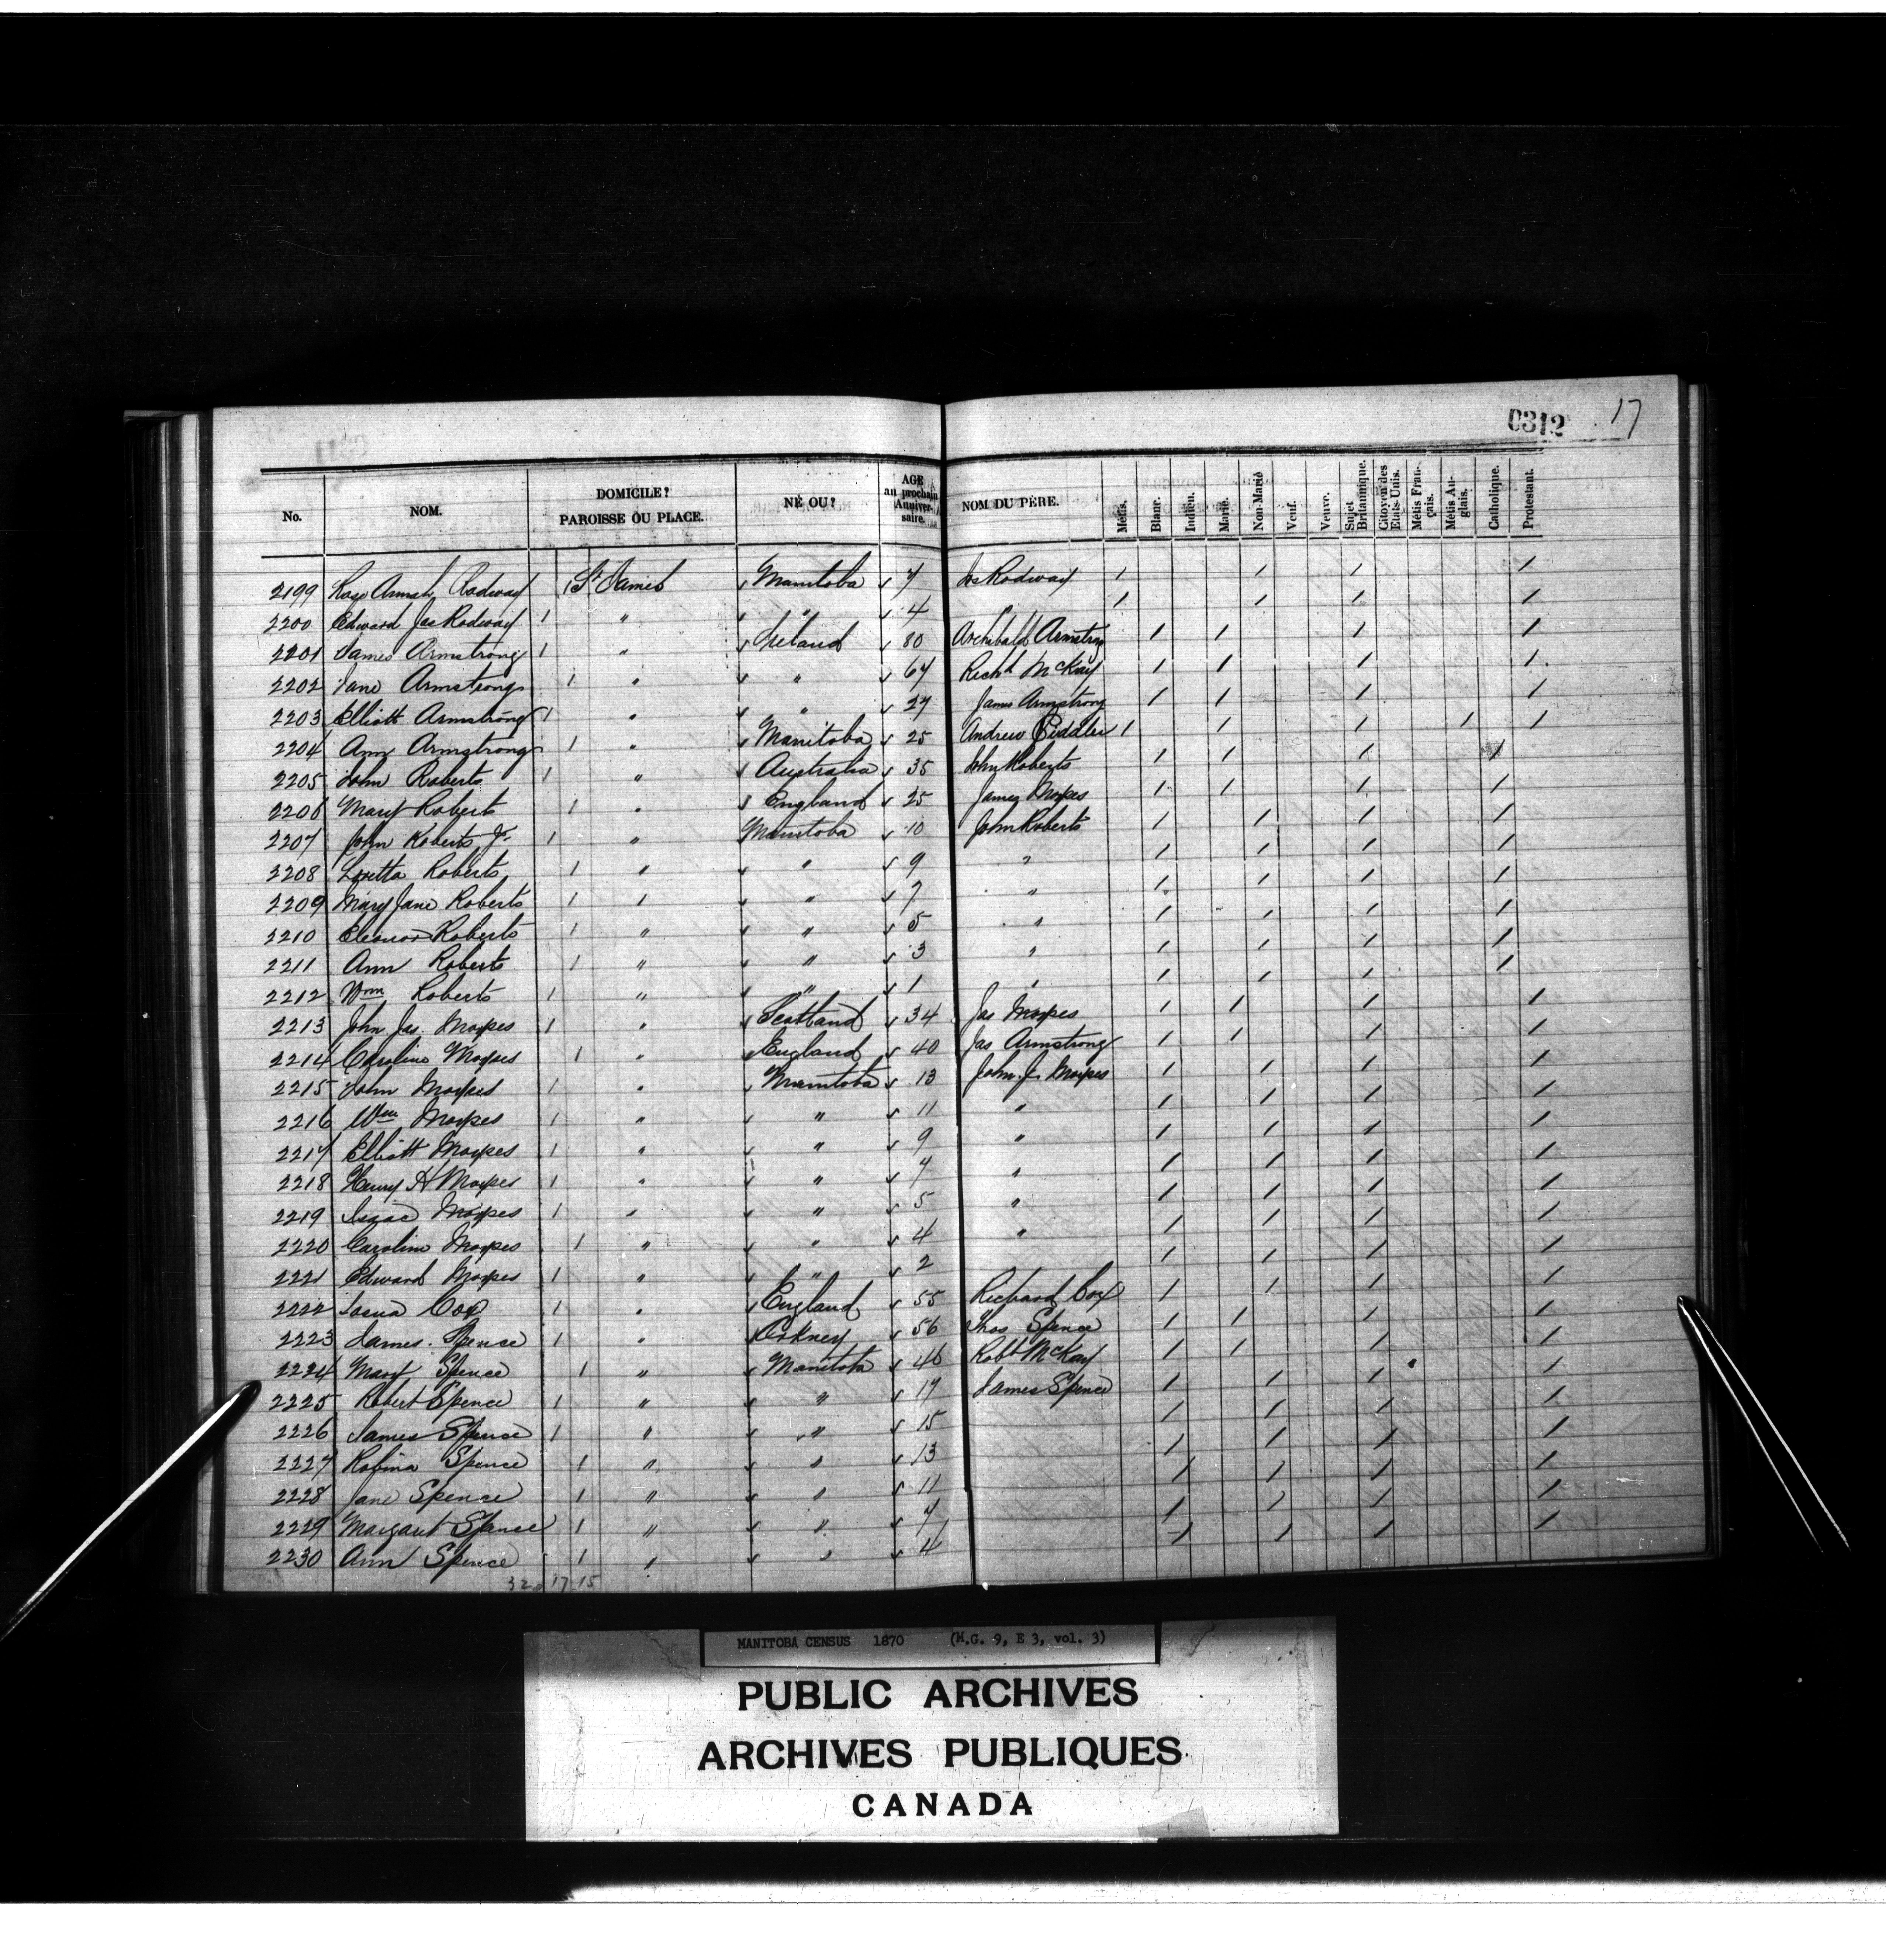 0312 17
No. NOM. DOMICILE? PAROISSE OU PLACE. NÉ OU? AGE au prochain Anniversaire. NOM DU PÈRE. Métis. Blanc. Indien. Marié. Non-Marié Veuf. Veuve. Sujet Britannique. Citoyen des Etats-Unis. Métis Français. Métis Anglais. Catholique. Protestant.
2199 Rodway 1 St James Manitoba 7 Jas Rodway / / / /
2200 Edward Jas Rodway 1 " " 4 / / / /
2201 James Armstrong 1 " Ireland 80 Archibald Armstrong / / / /
2202 Jane Armstrong 1 " " 64 Richd McKay / / / /
2203 Elliott Armstrong 1 " " 27 James Armstrong / / / /
2204 Ann Armstrong 1 " Manitoba 25 Andrew 1 / / / /
2205 John Roberts 1 " Australia 35 John Roberts / / / /
2206 Mary Roberts 1 " England 25 James Moxpes / / / /
2207 John Roberts Jr. 1 " Manitoba 10 John Roberts / / / /
2208 Loretta Roberts 1 " " 9 " / / / /
2209 Mary Jane Roberts 1 " " 7 " / / / /
2210 Eleanor Roberts 1 " " 5 " / / / /
2211 Ann Roberts 1 " " 3 " / / / /
2212 Wm Roberts 1 " " 1 " / / / /
2213 John Jas. Moxpes 1 " Scotland 34 Jas Moxpes / / / /
2214 Caroline Moxpes 1 " England 40 Jas Armstrong / / / /
2215 John Moxpes 1 " Manitoba 13 John J. Moxpes / / / /
2216 Wm Moxpes 1 " " 11 " / / / /
2217 Elliott Moxpes 1 " " 9 " / / / /
2218 Henry H Moxpes 1 " " 7 " / / / /
2219 Isaac Moxpes 1 " " 5 " / / / /
2220 Caroline Moxpes 1 " " 4 " / / / /
2221 Edward Moxpes 1 " " 2 / / / /
2222 Cox 1 " England 55 Richard Cox / / / /
2223 James Spence 1 " Orkney 56 Thos Spence / / / /
2224 Mary Spence 1 " Manitoba 46 Robt McKay / / / /
2225 Robert Spence 1 " " 17 James Spence / / / /
2226 James Spence 1 " " 15 / / / /
2227 Robina Spence 1 " " 13 / / / /
2228 Jane Spence 1 " " 11 / / / /
2229 Margaret Spence 1 " " 7 / / / /
2230 Ann Spence 1 " " 4 / / / /
32 17 15
MANITOBA CENSUS 1870 (M.G. 9, E 3, vol. 3)
PUBLIC ARCHIVES
ARCHIVES PUBLIQUES
CANADA